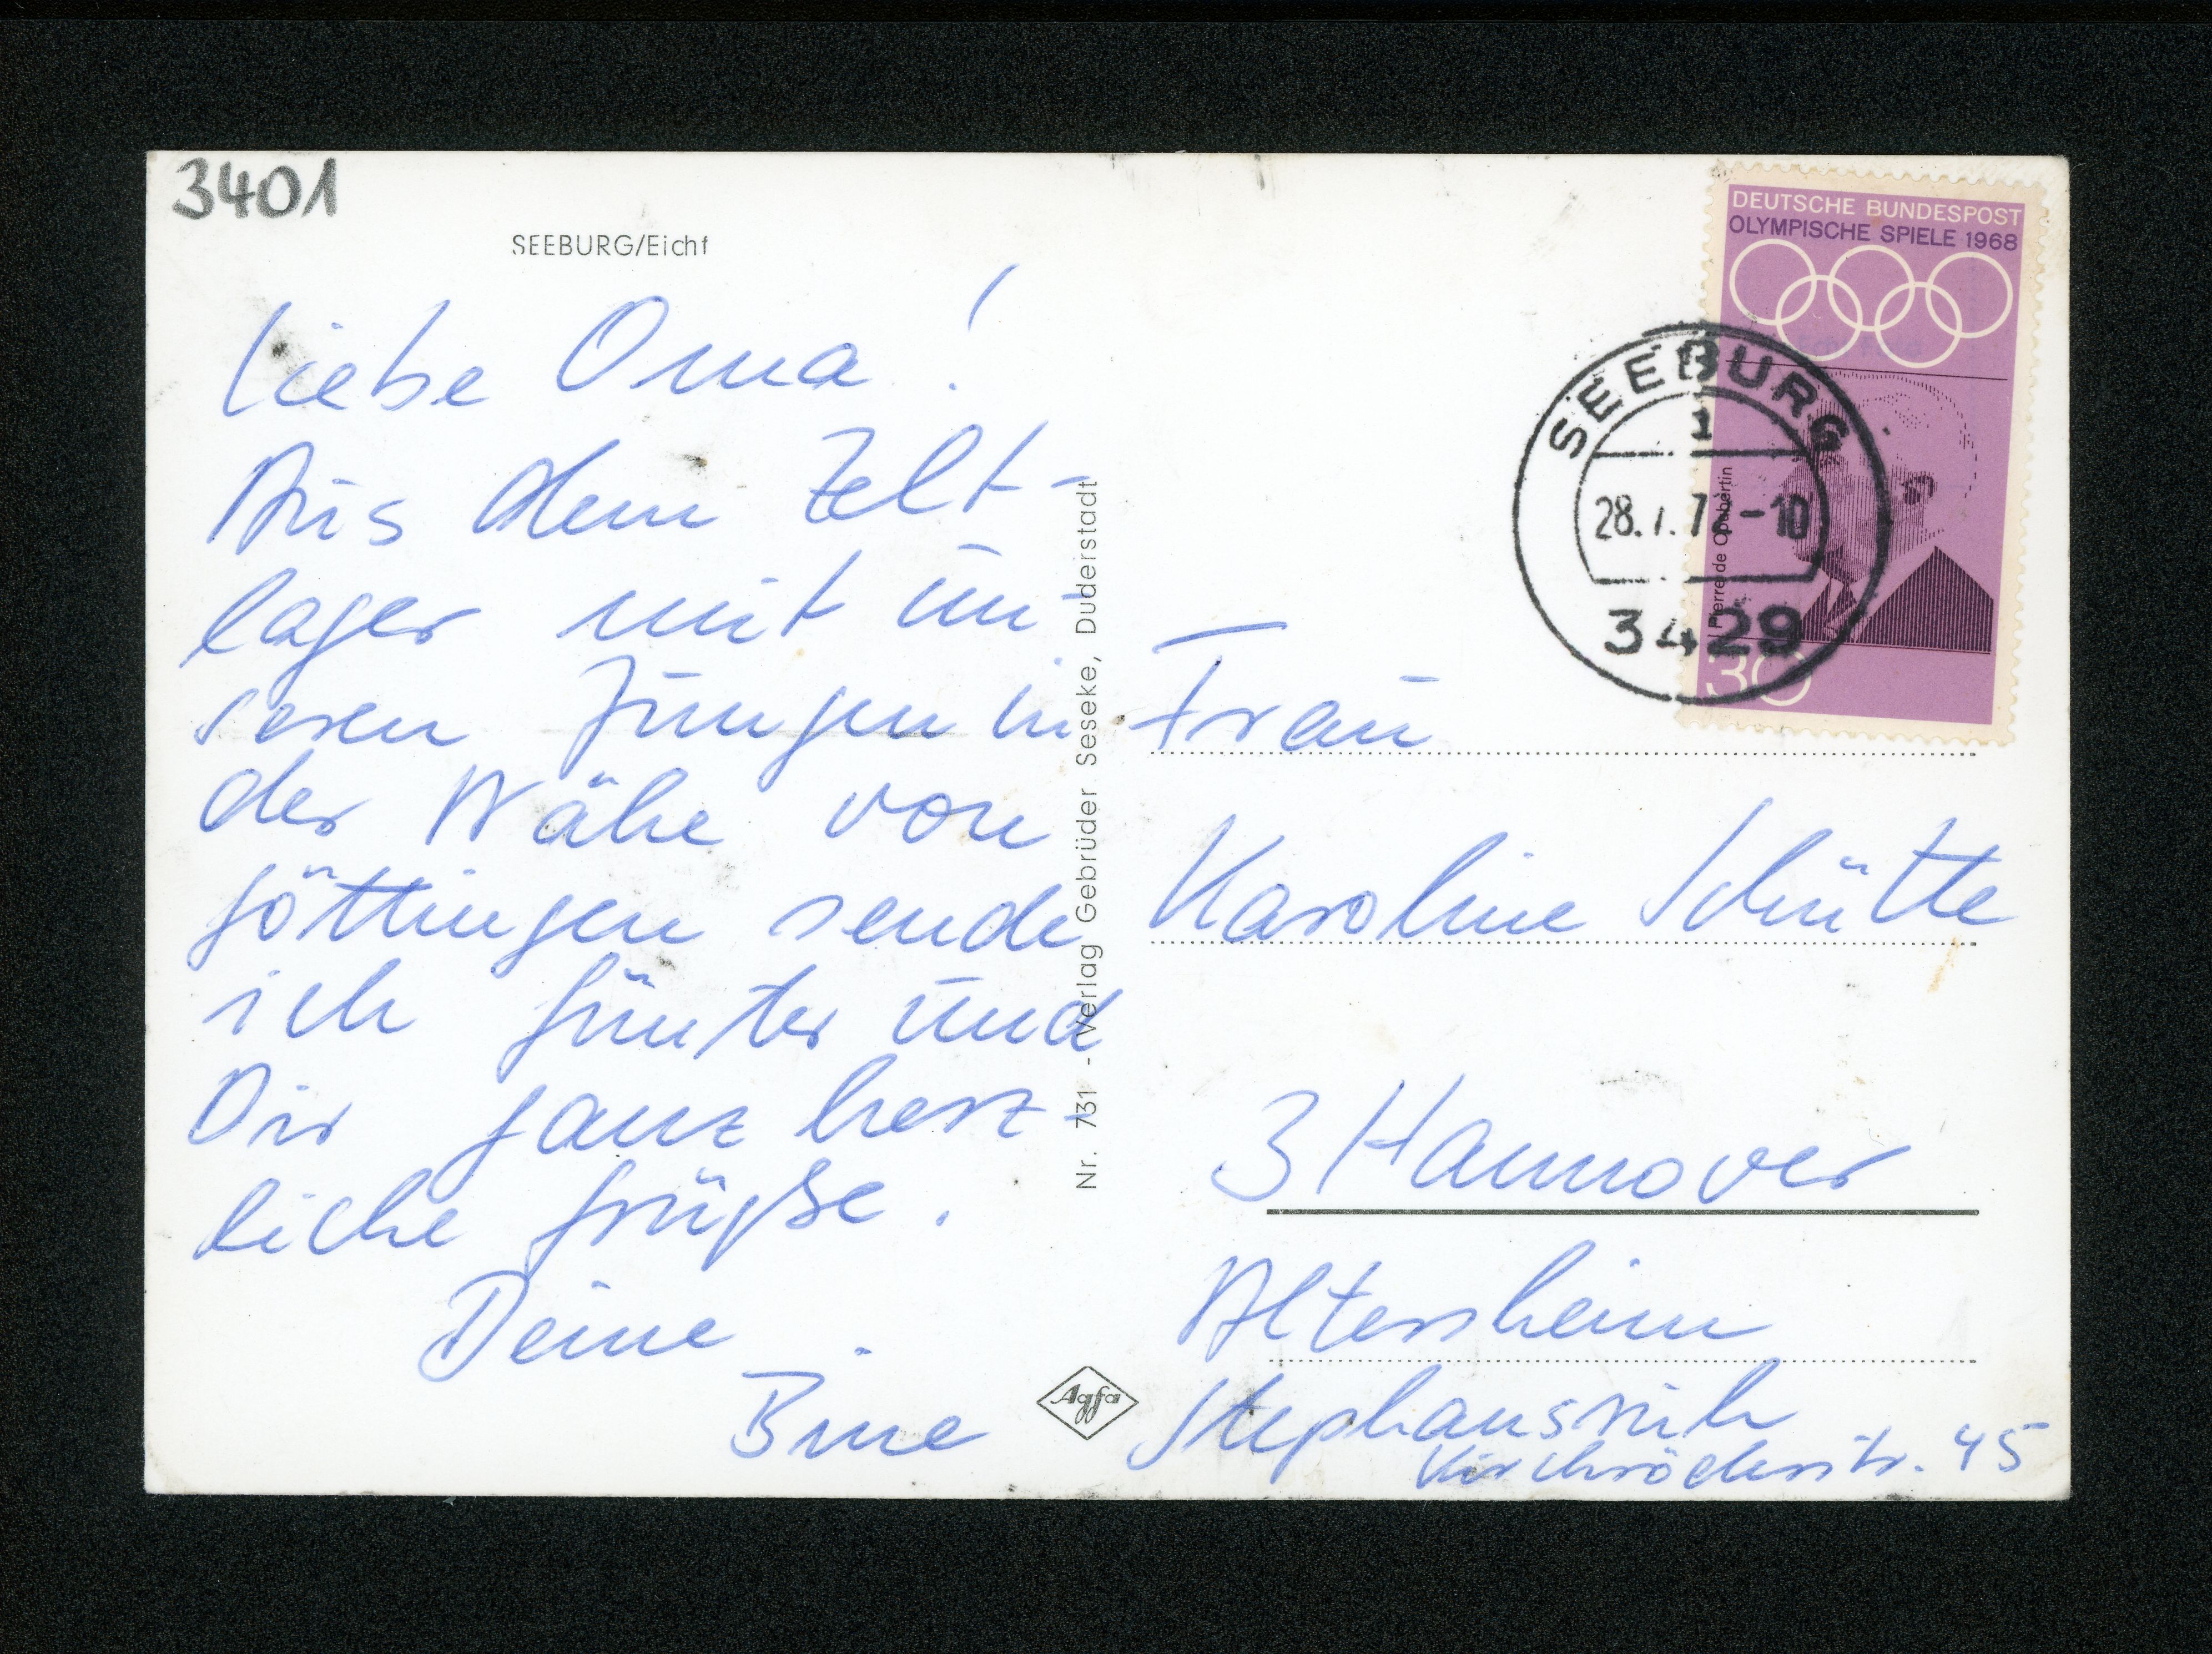 3401
SEEBURG/Eichf
Liebe Oma!
Aus dem Zelt-
lager mit un-
seren Jungen in
der Nähe von
Göttingen sende
ich Günter und
Dir ganz herz-
liche Grüße.
Deine
Bine
Nr. 731 - Verlag Gebrüder Seseke, Duderstadt
Agfa
DEUTSCHE BUNDESPOST
OLYMPISCHE SPIELE 1968
Pierre de Coubertin
30
SEEBURG
1
-10
3429
Frau
Karoline Schütte
3 Hannover
Altersheim
Stephansruh
Kirchröderstr. 45